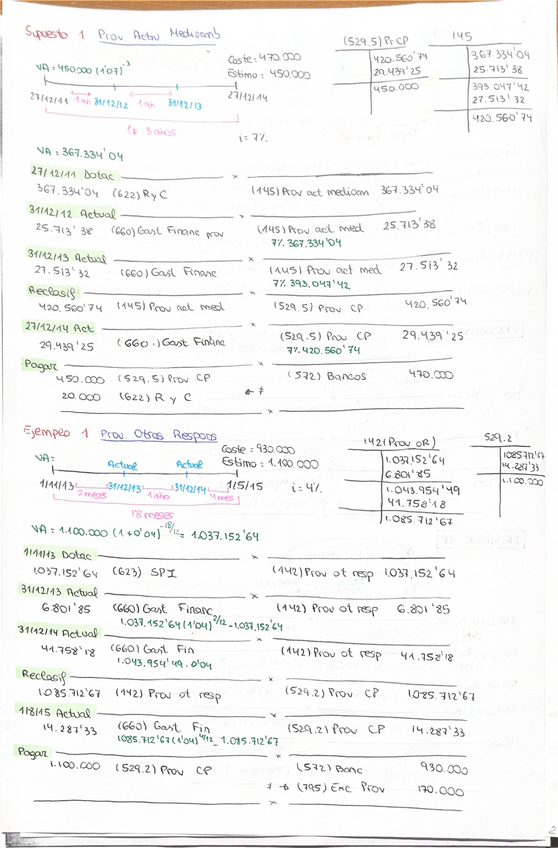 Supuesto 1 Prov Activ Medioamb
Coste = 470.000
Estimo = 450.000
VA = 450.000 (1'07)⁻³
27/12/11 1 año 31/12/12 1 año 31/12/13 27/12/14
3 años
i = 7%
(529.5) Pr CP
420.560'74
29.439'25
450.000
145
367.334'04
25.713'38
393.047'42
27.513'32
420.560'74
VA = 367.334'04
27/12/11 Dotac x
367.334'04 (622) R y C (145) Prov act medioam 367.334'04
31/12/12 Actual x
25.713'38 (660) Gast Financ prov (145) Prov act med 25.713'38
7% 367.334'04
31/12/13 Actual x
27.513'32 (660) Gast Financ (145) Prov act med 27.513'32
7% 393.047'42
Reclasif x
420.560'74 (145) Prov act med (529.5) Prov CP 420.560'74
27/12/14 Act x
29.439'25 (660.) Gast Financ (529.5) Prov CP 29.439'25
7% 420.560'74
Pagar x
450.000 (529.5) Prov CP (572) Bancos 470.000
20.000 (622) R y C ← +
x
Ejemplo 1 Prov Otras Respons
Coste = 930.000
Estimo = 1.100.000
VA =
Actual Actual
1/11/13 31/12/13 31/12/14 1/5/15
2 meses 1 año 4 mes
18 meses
i = 4%
142 (Prov OR)
1.037.152'64
6.801'85
1.043.954'49
41.758'18
1.085.712'67
529.2
1085.712'67
14.287'33
1.100.000
VA = 1.100.000 (1 + 0'04)⁻¹⁸/¹² = 1.037.152'64
1/11/13 Dotac x
1.037.152'64 (623) SPI (142) Prov ot resp 1.037.152'64
31/12/13 Actual x
6.801'85 (660) Gast Financ (142) Prov ot resp 6.801'85
1.037.152'64 (1'04)²/¹² - 1.037.152'64
31/12/14 Actual x
41.758'18 (660) Gast Fin (142) Prov ot resp 41.758'18
1.043.954'49 · 0'04
Reclasif x
1.085.712'67 (142) Prov ot resp (529.2) Prov CP 1.085.712'67
1/8/15 Actual x
14.287'33 (660) Gast Fin (529.2) Prov CP 14.287'33
1085.712'67 (1'04)⁴/¹² - 1.085.712'67
Pagar x
1.100.000 (529.2) Prov CP (572) Banc 930.000
+ → (795) Exc Prov 170.000
x
2